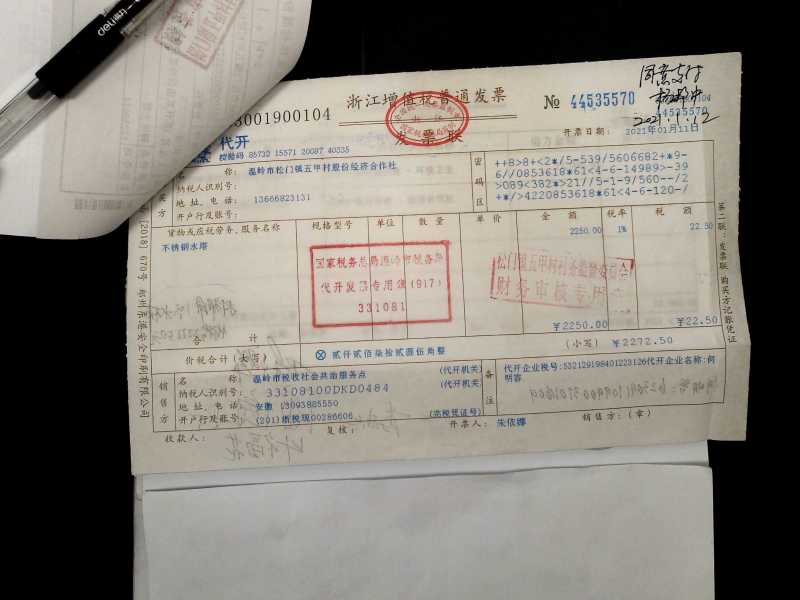 deli
浙江增值税普通发票
发票联
3001900104
№ 44535570
44535570
代开
校验码 85732 15571 20087 40335
开票日期: 2021年01月11日
同意支付
2021.1.12
购买方
名 称: 温岭市松门镇五甲村股份经济合作社
纳税人识别号:
地址、电话: 13666823131
开户行及账号:
密码区
++8>8+<2*/5-539/5606682+*9-
6//0853618*61<4-6-14989>-39
>089<382*>21//5-1-9/560--/2
+*/>4220853618*61<4-6-120-/
货物或应税劳务、服务名称 规格型号 单位 数量 单价 金额 税率 税额
不锈钢水塔 2250.00 1% 22.50
国家税务总局温岭市税务局
代开发票专用章(917)
331081
松门镇五甲村村务监督委员会
财务审核专用章
合计 ¥2250.00 ¥22.50
价税合计(大写) ⊗ 贰仟贰佰柒拾贰圆伍角整 (小写) ¥2272.50
销售方
名 称: 温岭市税收社会共治服务点 (代开机关)
纳税人识别号: 33108100DKD0484 (代开机关)
地址、电话: 安徽 13093885550
开户行及账号: (201)浙税现00286606 (完税凭证号)
备注
代开企业税号:532129198401223126代开企业名称:何
明容
收款人:
复核:
开票人: 朱依娜
销售方:(章)
第二联:发票联 购买方记账凭证
[2018] 670号 郑州东港安全印刷有限公司